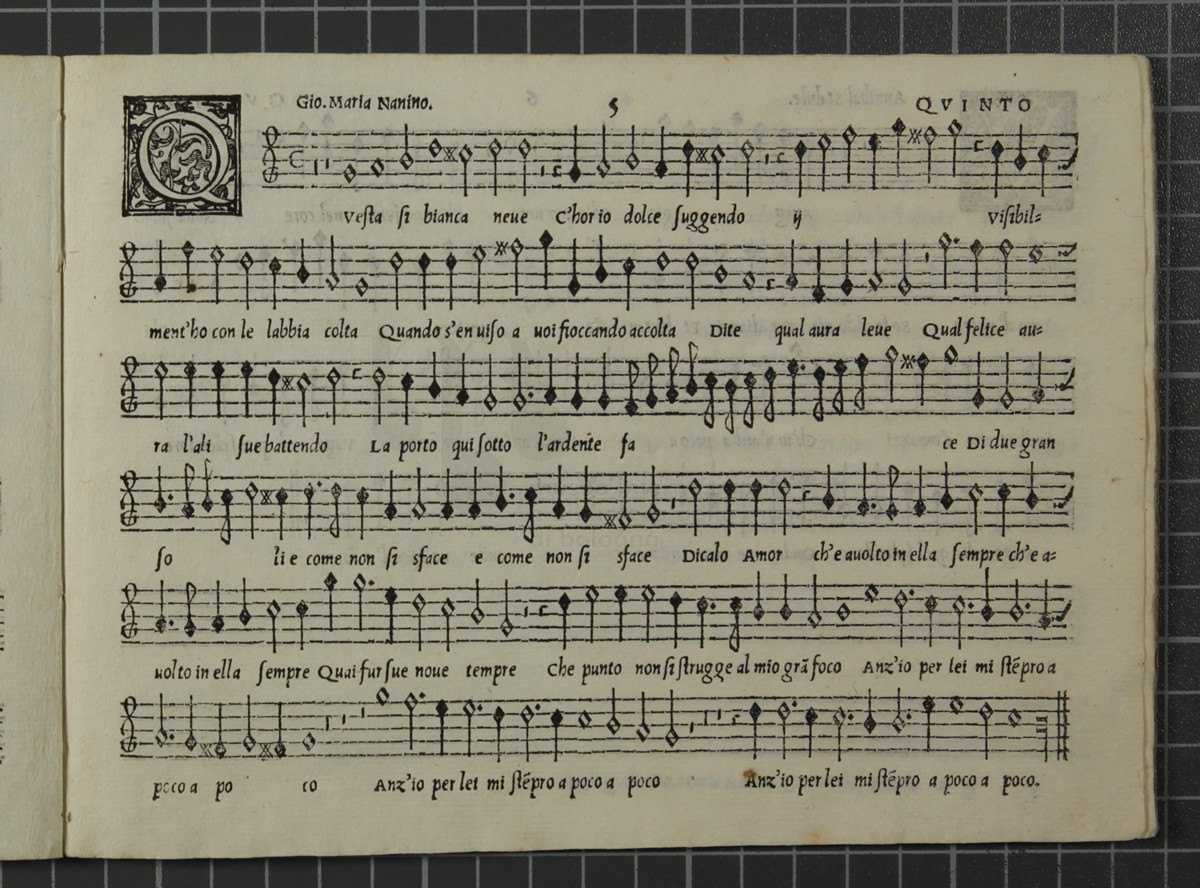 Gio. Maria Nanino. 5 QVINTO
Q Vesta si bianca neue C'hor io dolce suggendo ij visibil=
ment'ho con le labbia colta Quando s'en uiso a uoi fioccando accolta Dite qual aura leue Qual felice au=
ra l'ali sue battendo La porto qui sotto l'ardente fa ce Di due gran
so li e come non si sface e come non si sface Dicalo Amor ch'e auolto in ella sempre ch'e a=
uolto in ella sempre Quai fur sue noue tempre Che punto non si strugge al mio grã foco Anz'io per lei mi stẽpro a
poco a po co Anz'io per lei mi stẽpro a poco a poco Anz'io per lei mi stẽpro a poco a poco.